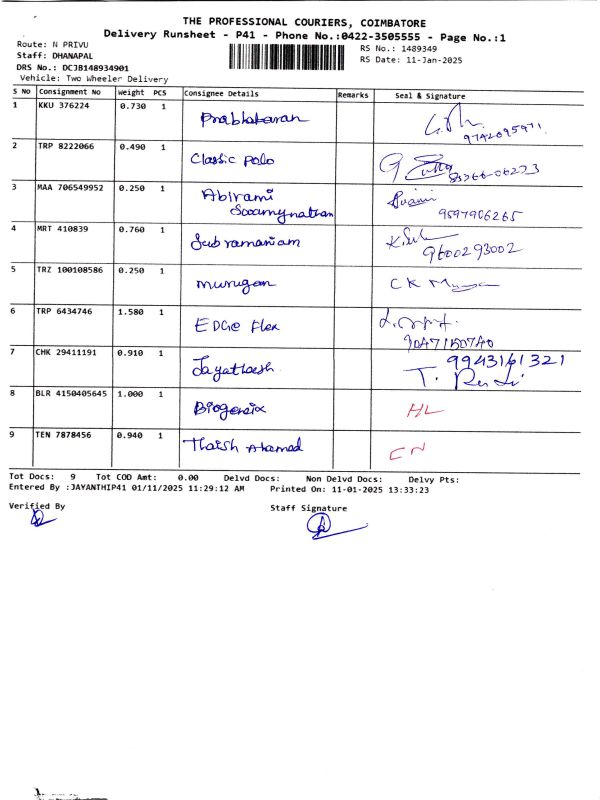 THE PROFESSIONAL COURIERS, COIMBATORE
Delivery Runsheet - P41 - Phone No.:0422-3505555 - Page No.:1
Route: N PRIVU RS No.: 1489349
Staff: DHANAPAL RS Date: 11-Jan-2025
DRS No.: DCJB148934901
Vehicle: Two Wheeler Delivery
S No Consignment No Weight PCS Consignee Details Remarks Seal & Signature
1 KKU 376224 0.730 1 Prabhakaran
9742095971
2 TRP 8222066 0.490 1 Classic Polo
3 MAA 706549952 0.250 1 Abirami
Swamynathan 9597906265
4 MRT 410839 0.760 1 Subramaniam
9600293002
5 TRZ 100108586 0.250 1 Murugan CK
6 TRP 6434746 1.580 1 EDGe Flex
7 CHK 29411191 0.910 1 Jayathesh 9943161321
8 BLR 4150405645 1.000 1 Biogenix HL
9 TEN 7878456 0.940 1 Thaish Ahamed CN
Tot Docs: 9 Tot COD Amt: 0.00 Delvd Docs: Non Delvd Docs: Delvy Pts:
Entered By :JAYANTHIP41 01/11/2025 11:29:12 AM Printed On: 11-01-2025 13:33:23
Verified By Staff Signature